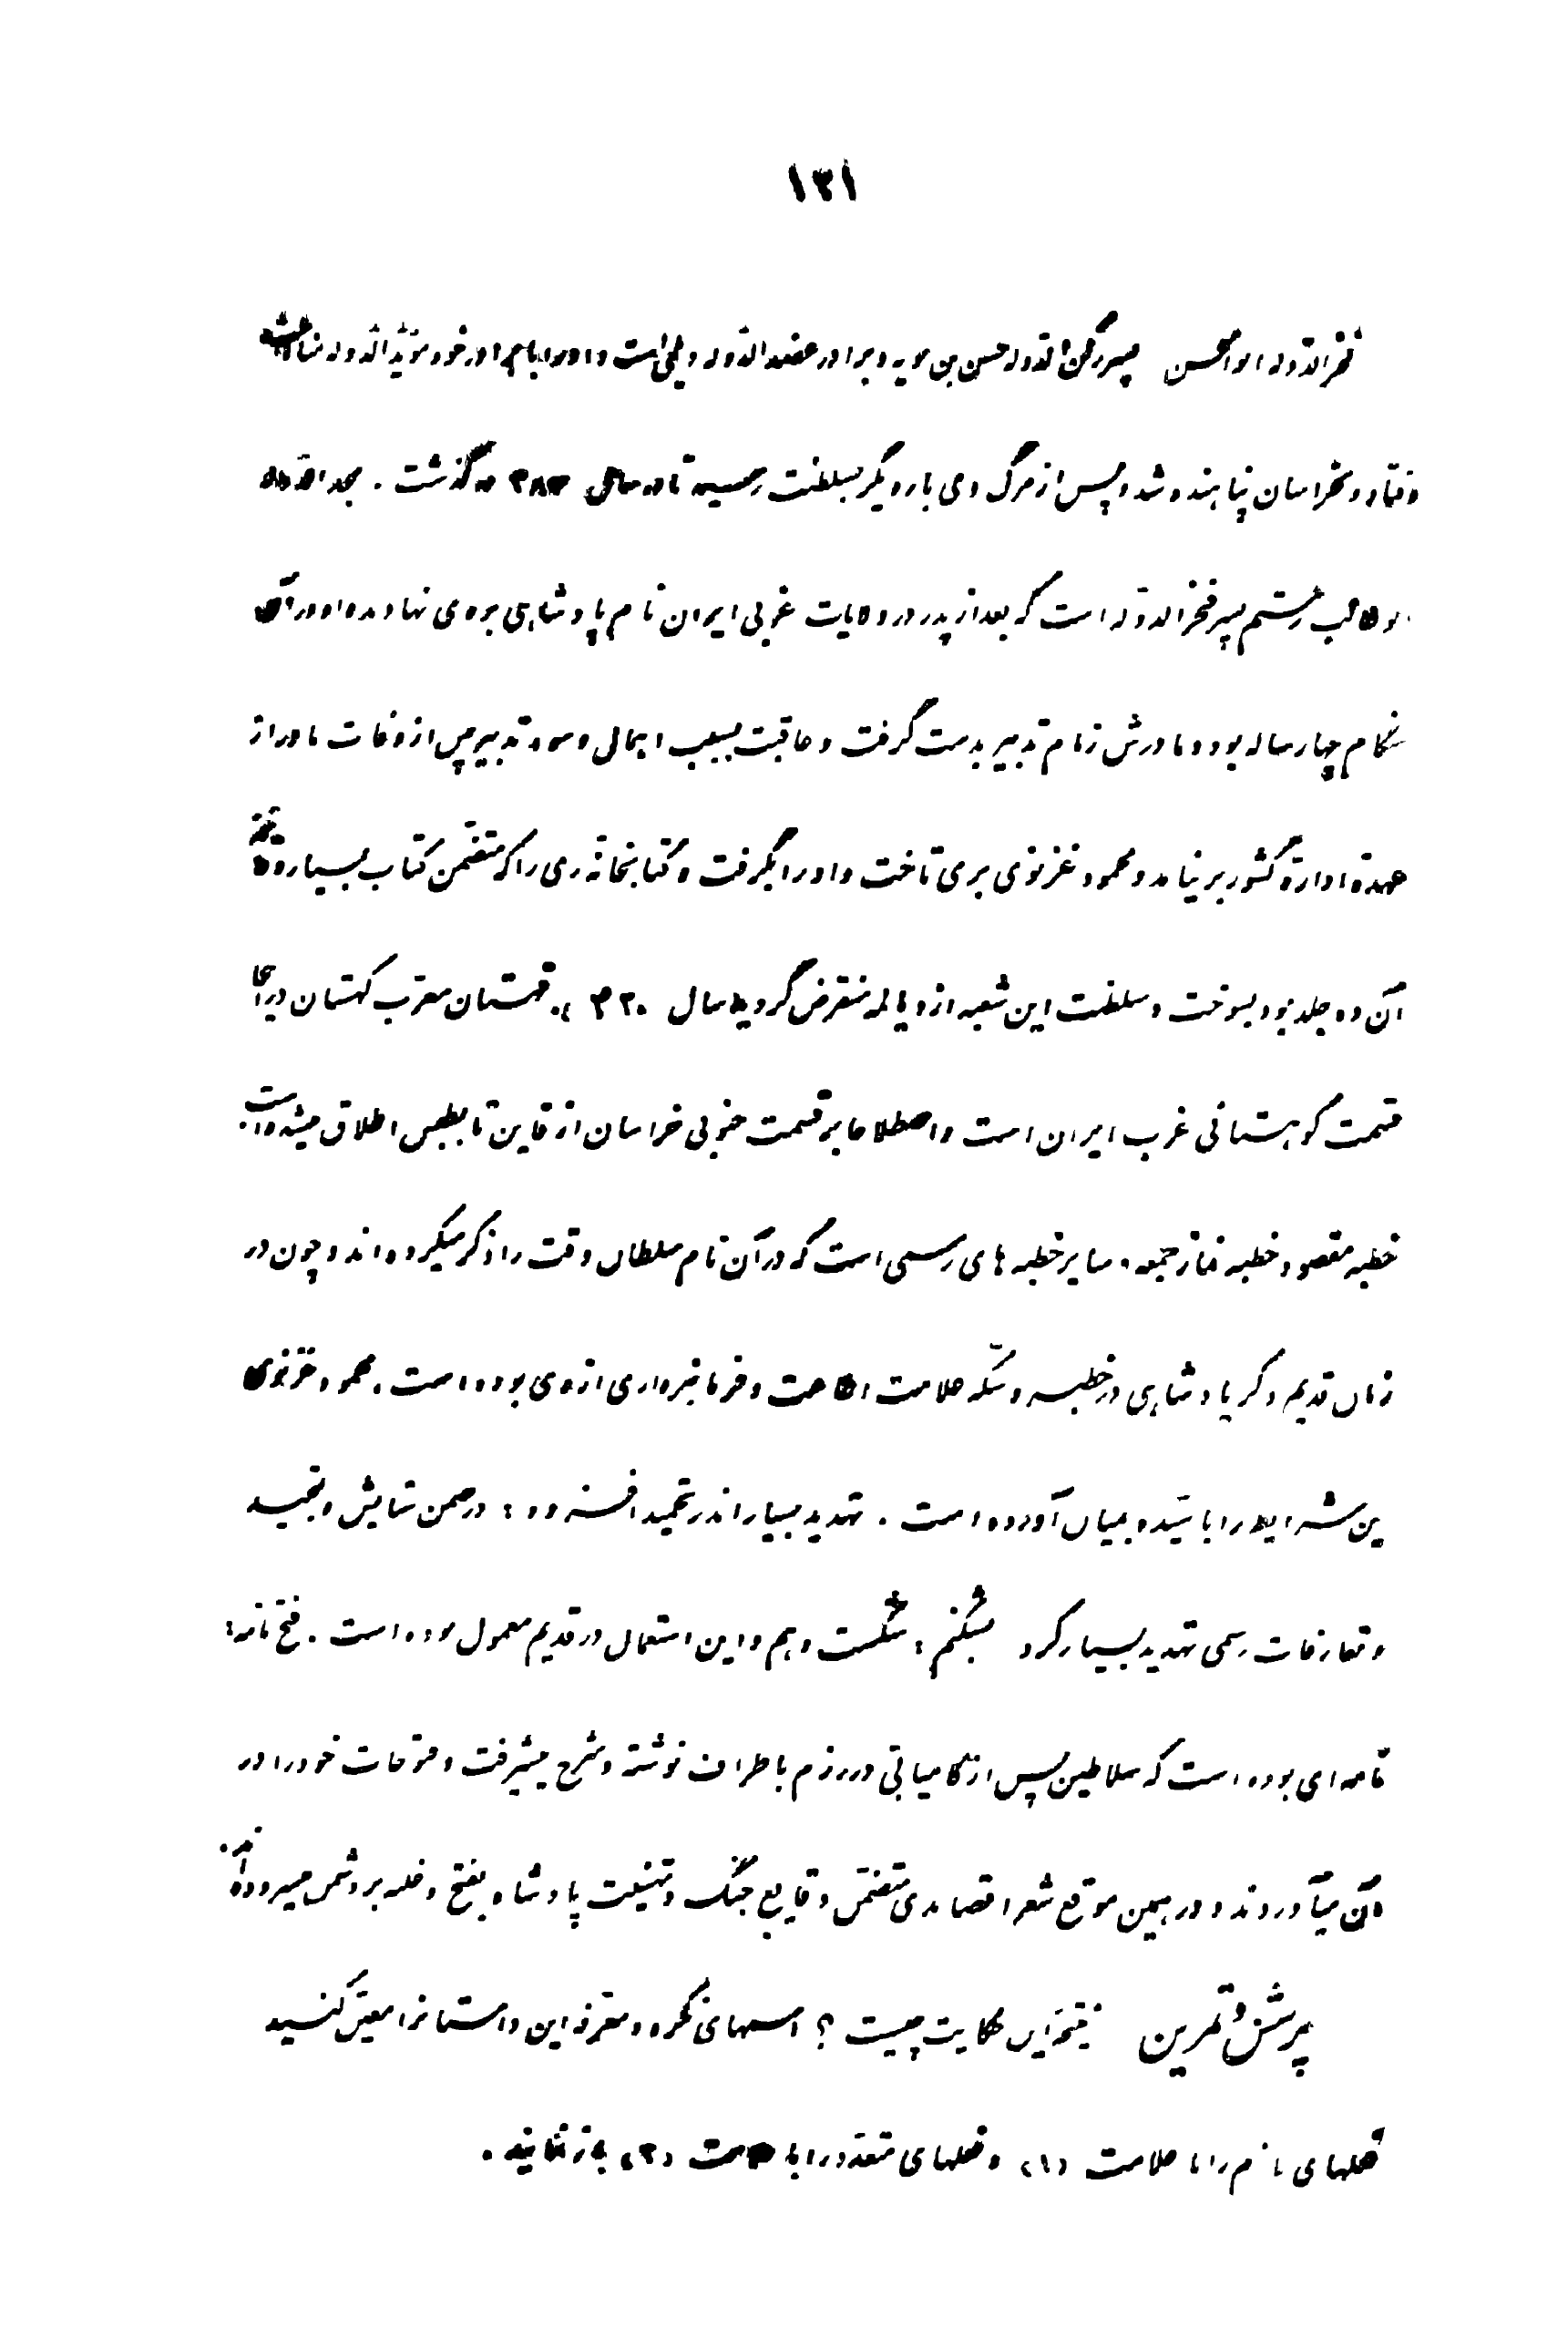 ۱۳۱
فخرالدّوله ابوالحسن پسر رکن الدّوله حسن بن بویه و برادر عضدالدّوله دیلمی است و او در ایام برادر خود مؤیّدالدّوله
و بخراسان پناهنده شد و پس از مرگ وی بار دیگر بسلطنت رسید تا در سال ۳۸۷ درگذشت . مجدالدّوله
ابوطالب رستم پسر فخرالدّوله است که بعد از پدر در ولایات غربی ایران نام پادشاهی بر وی نهادند و او در آن
هنگام چهارساله بود و مادرش زمام تدبیر بدست گرفت و عاقبت بسبب اهمال و سوء تدبیر پس از وفات مادر از
عهدهٔ ادارهٔ کشور برنیامد و محمود غزنوی بری تاخت و او را بگرفت و کتابخانهٔ ری را که متضمّن کتاب بسیار و
آن ده جلد بود بسوخت و سلطنت این شعبه از دیالمه منقرض گردید سال ۴۲۰ ، قهستان معرّب کهستان در
قسمت کوهستانی غرب ایران است و اصطلاحا بر قسمت جنوبی خراسان از قاین تا بطبس اطلاق میشده است .
خطبه مقصود خطبه نماز جمعه و سایر خطبه های رسمی است که در آن نام سلطان وقت را ذکر میکرده اند و چون در
زمان قدیم ذکر پادشاهی در خطبه و سکّه علامت اطاعت و فرمانبرداری از وی بوده است ، محمود غزنوی
این شرایط را با سیّده بمیان آورده است . تهدید بسیار اندر تحمید افزوده : در ضمن ستایش و تمجید
و تعارفات رسمی تهدید بسیار کرد بشکنم : شکست دهم و این استعمال در قدیم معمول بوده است . فتح نامه :
نامه ای بوده است که سلاطین پس از کامیابی در رزم باطراف نوشته و شرح پیشرفت و فتوحات خود را در
آن میآوردند و در همین موقع شعرا قصایدی متضمّن وقایع جنگ و تهنیت پادشاه بفتح و غلبه بر دشمن میسروده اند .
پرسش و تمرین نتیجهٔ این حکایت چیست ؟ اسمهای نکره و معرفه این داستانرا معیّن کنسید
فعلهای لازم را با علامت (۱) و فعلهای متعدّی را با علامت (۲) باز نمایند .